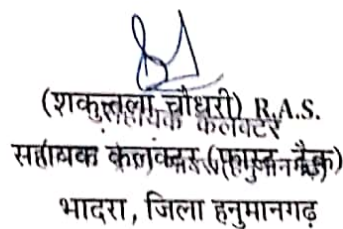 (शकुन्तला चौधरी) R.A.S.
सहायक कलक्टर
सहायक कलक्टर (फास्ट ट्रैक)
भादरा, जिला हनुमानगढ़